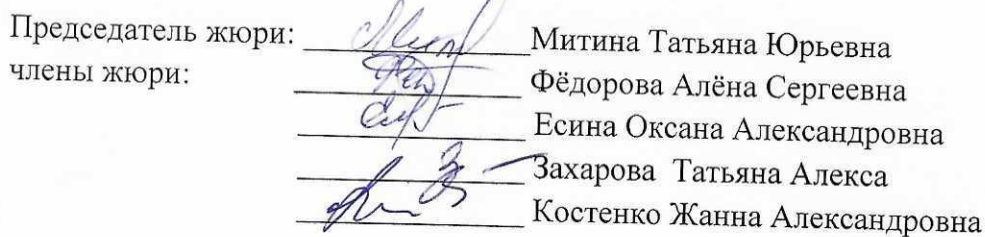 Председатель жюри: Митина Татьяна Юрьевна
члены жюри: Фёдорова Алёна Сергеевна
Есина Оксана Александровна
Захарова Татьяна Алекса
Костенко Жанна Александровна